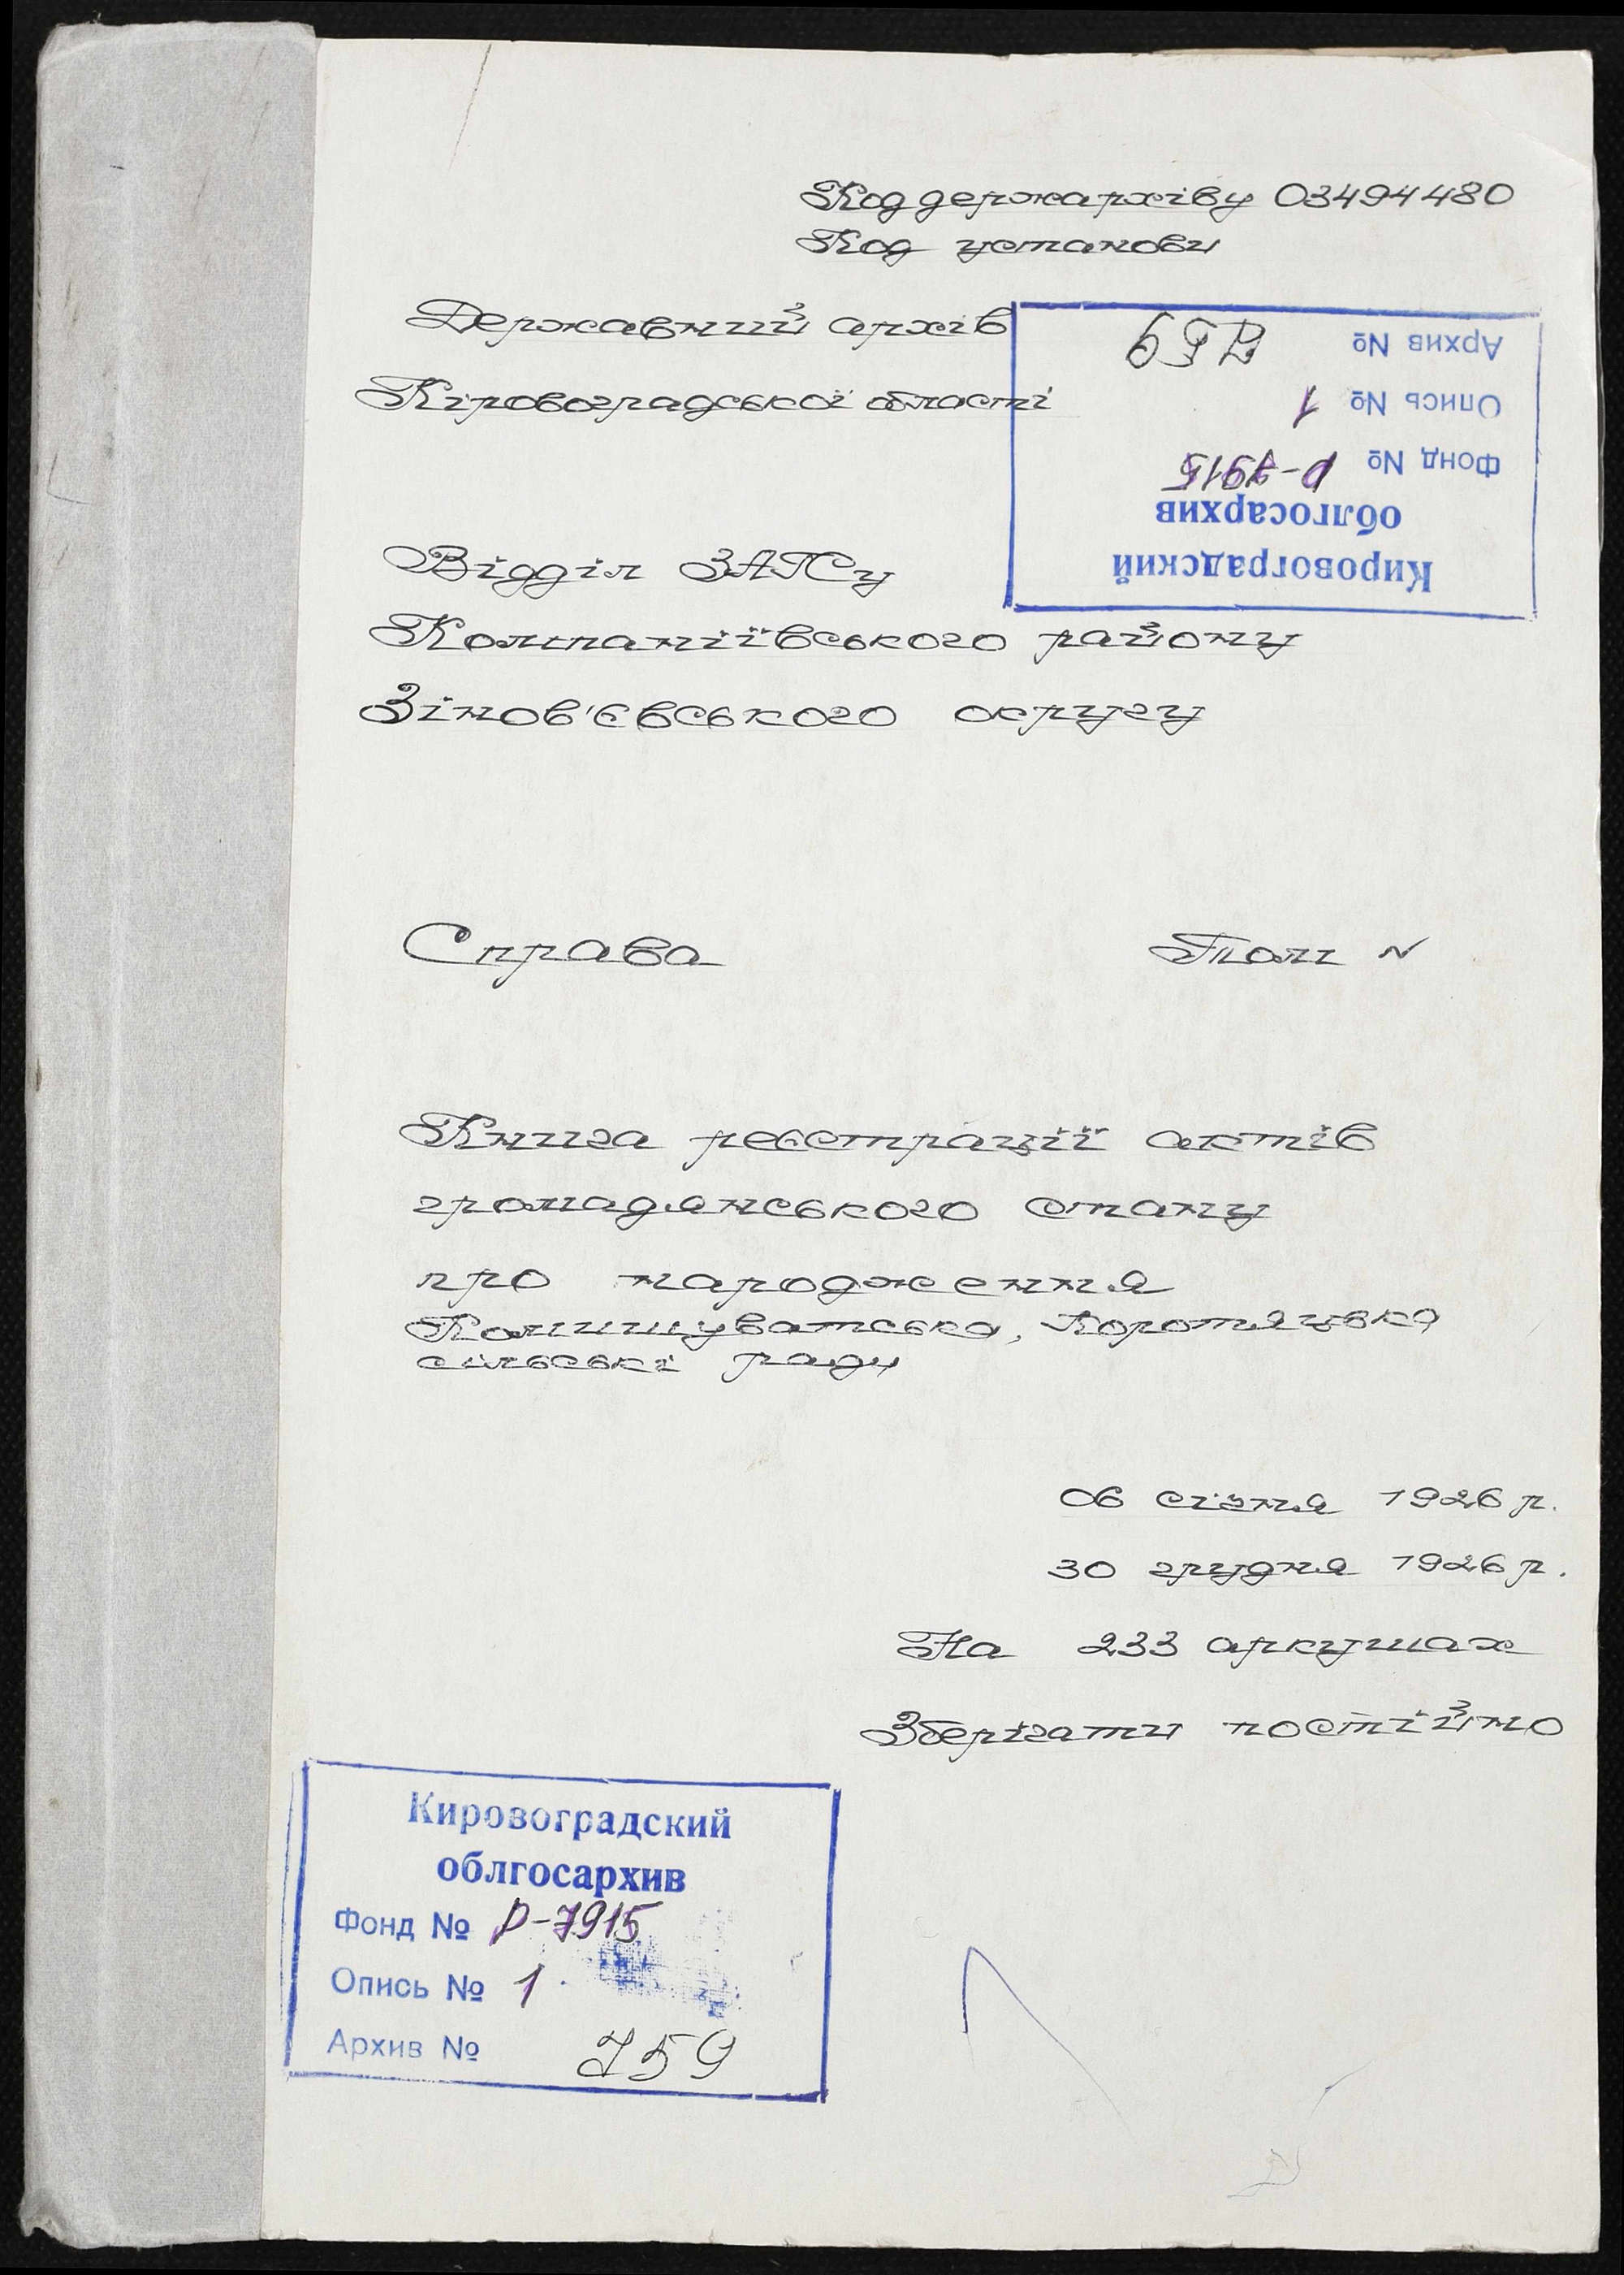 Код держархіву 03494480
Код установи
Державний архів
Кіровоградської області
Кировоградский
облгосархив
Фонд № Р-7915
Опись № 1
Архив № 759
Відділ ЗАГСу
Компаніївського району
Зінов'євського округу
Справа Том №
Книга реєстрації актів
громадянського стану
про народження
Камишуватська, Коротяцька
сільські ради
06 січня 1926 р.
30 грудня 1926 р.
На 233 аркушах
Зберігати постійно
Кировоградский
облгосархив
Фонд № Р-7915
Опись № 1
Архив № 759